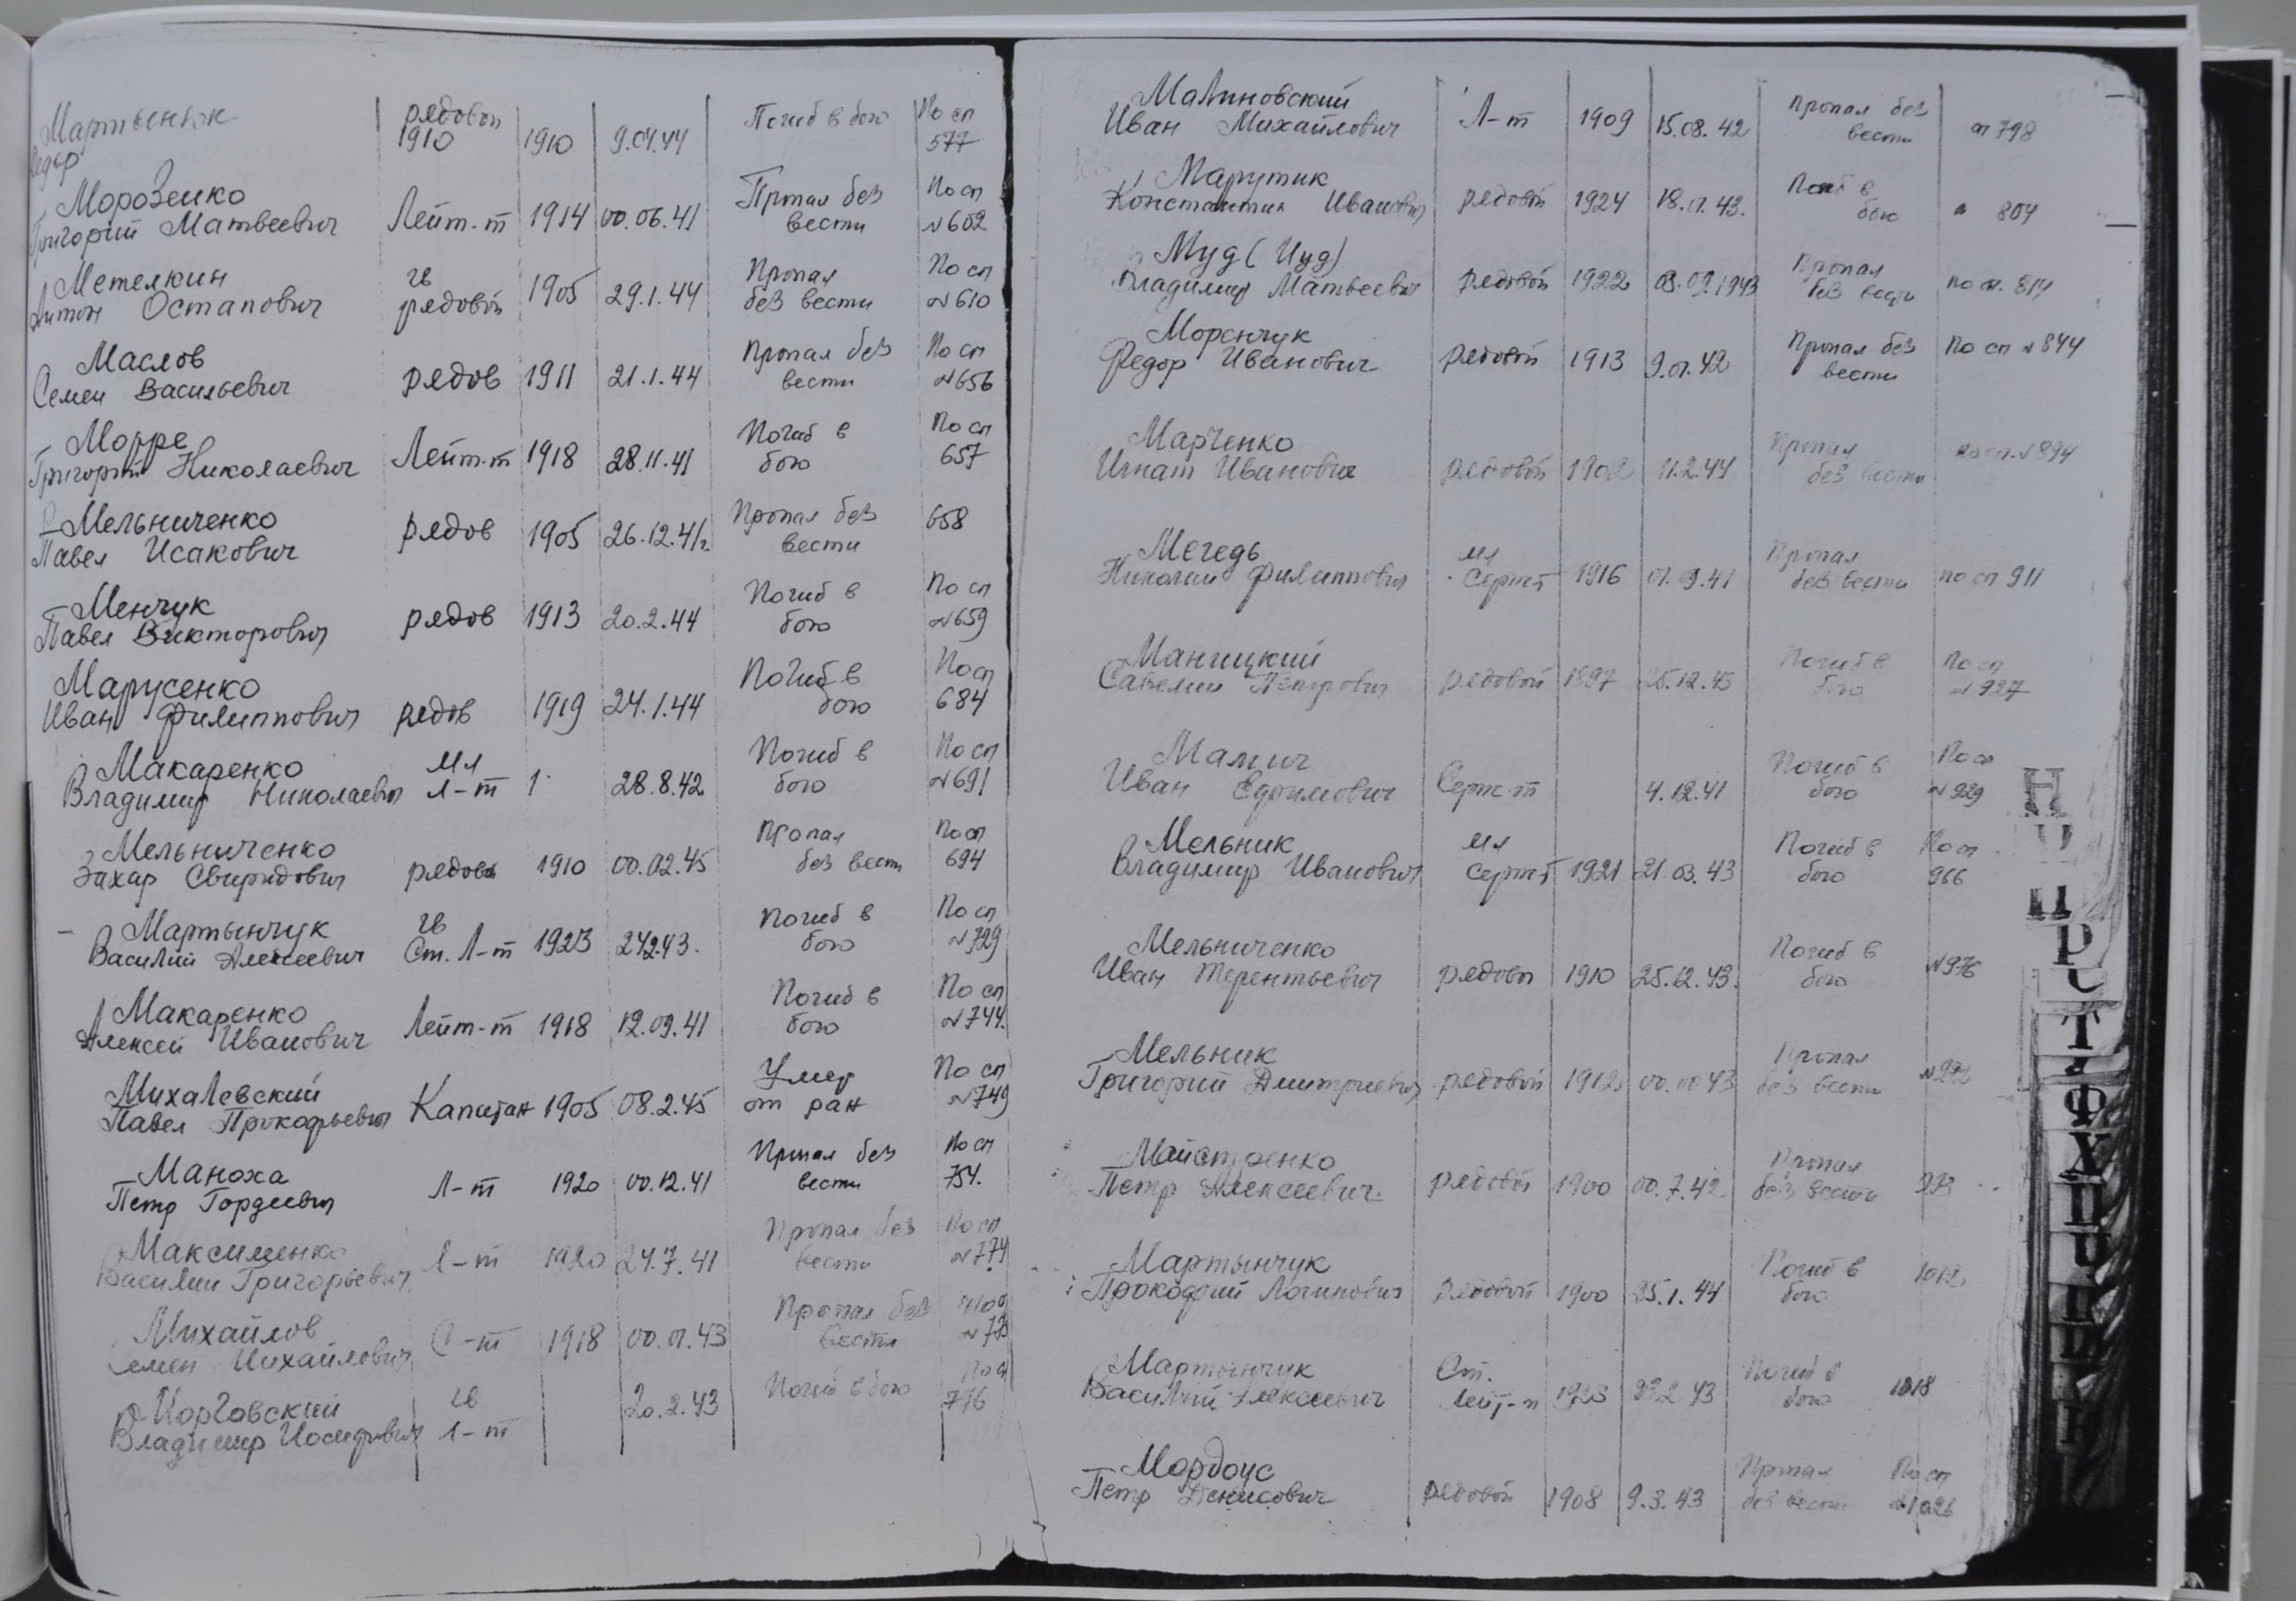 Мартынюк рядовой 1910 9.04.44 Погиб в бою По сп
Федор 1910 577
Морозенко Пропал без По сп
Григорий Матвеевич Лейт-т 1914 00.06.41 вести №602
Метелкин гв Пропал По сп
Антон Остапович рядовой 1905 29.1.44 без вести №610
Маслов Пропал без По сп
Семен Васильевич рядов 1911 21.1.44 вести №656
Морре Погиб в По сп
Григорий Николаевич Лейт-т 1918 28.11.41 бою 657
Мельниченко Пропал без 658
Павел Исакович рядов 1905 26.12.41г. вести
Менчук Погиб в По сп
Павел Викторович рядов 1913 20.2.44 бою №659
Марусенко Погиб в По сп
Иван Филиппович рядов 1919 24.1.44 бою 684
Макаренко Мл Погиб в По сп
Владимир Николаевич Л-т 1 28.8.42 бою №691
Мельниченко Пропал По сп
Захар Свиридович рядов 1910 00.02.45 без вест 694
Мартынчук гв Погиб в По сп
Василий Алексеевич Ст. Л-т 1923 242.43. бою №729
Макаренко Погиб в По сп
Алексей Иванович Лейт-т 1918 12.09.41 бою №744.
Михалевский Умер По сп
Павел Прокофьевич Капитан 1905 08.2.45 от ран №749
Маноха Пропал без По сп
Петр Гордеевич Л-т 1920 00.12.41 вести 754.
Максименко Пропал без По сп
Василии Григорьевич Л-т 1920 24.7.41 вести №774
Михайлов Пропал без
Семен Михайлович 1918 00.01.43 вести
гв Погиб в бою По сп
Владимир Иосифович Л-т 20.2.43 776
Малиновский Пропал без
Иван Михайлович Л-т 1909 15.08.42 вести сп 798
Марутик Погиб в
Константин Иванович рядовой 1924 18.01.43. бою 804
Муд (Иуд) Пропал
Владимир Матвеевич рядовой 1922 03.09.1943 без вести по сп. 814
Моренчук Пропал без По сп № 844
Федор Иванович рядовой 1913 9.01.42 вести
Марченко Пропал по сп. №894
Игнат Иванович рядовой 11.2.44 без вести
Мегедь Мл Пропал
Николаи Филиппович Серж-т 1916 01.09.41 без вести по сп 911
Погиб в По сп
Савелии Петрович рядовой 1897 25.12.43 бою №927
Малич Погиб в По сп
Иван Ефимович Серж-т 4.12.41 бою №929
Мельник Мл Погиб в По сп
Владимир Иванович Серж-т 1921 21.03.43 бою 966
Мельниченко Погиб в
Иван Терентьевич рядовой 1910 25.12.43. бою №976
Мельник Пропал
Григорий Дмитриевич рядовой 1912 00.00.43 без вести
Майстренко Пропал
Петр Алексеевич рядовой 1900 00.7.42 без вести
Мартынчук Погиб в 1012
Прокофий Логинович рядовой 1900 25.1.44 бою
Мартынчук Ст. Погиб в
Василий Алексеевич Лейт-т 1923 22.2.43 бою 1018
Мордоус Пропал По сп
Петр Денисович рядовой 1908 9.3.43 без вести №1026
Н
П
Р
С
Т
Ф
Х
Ц